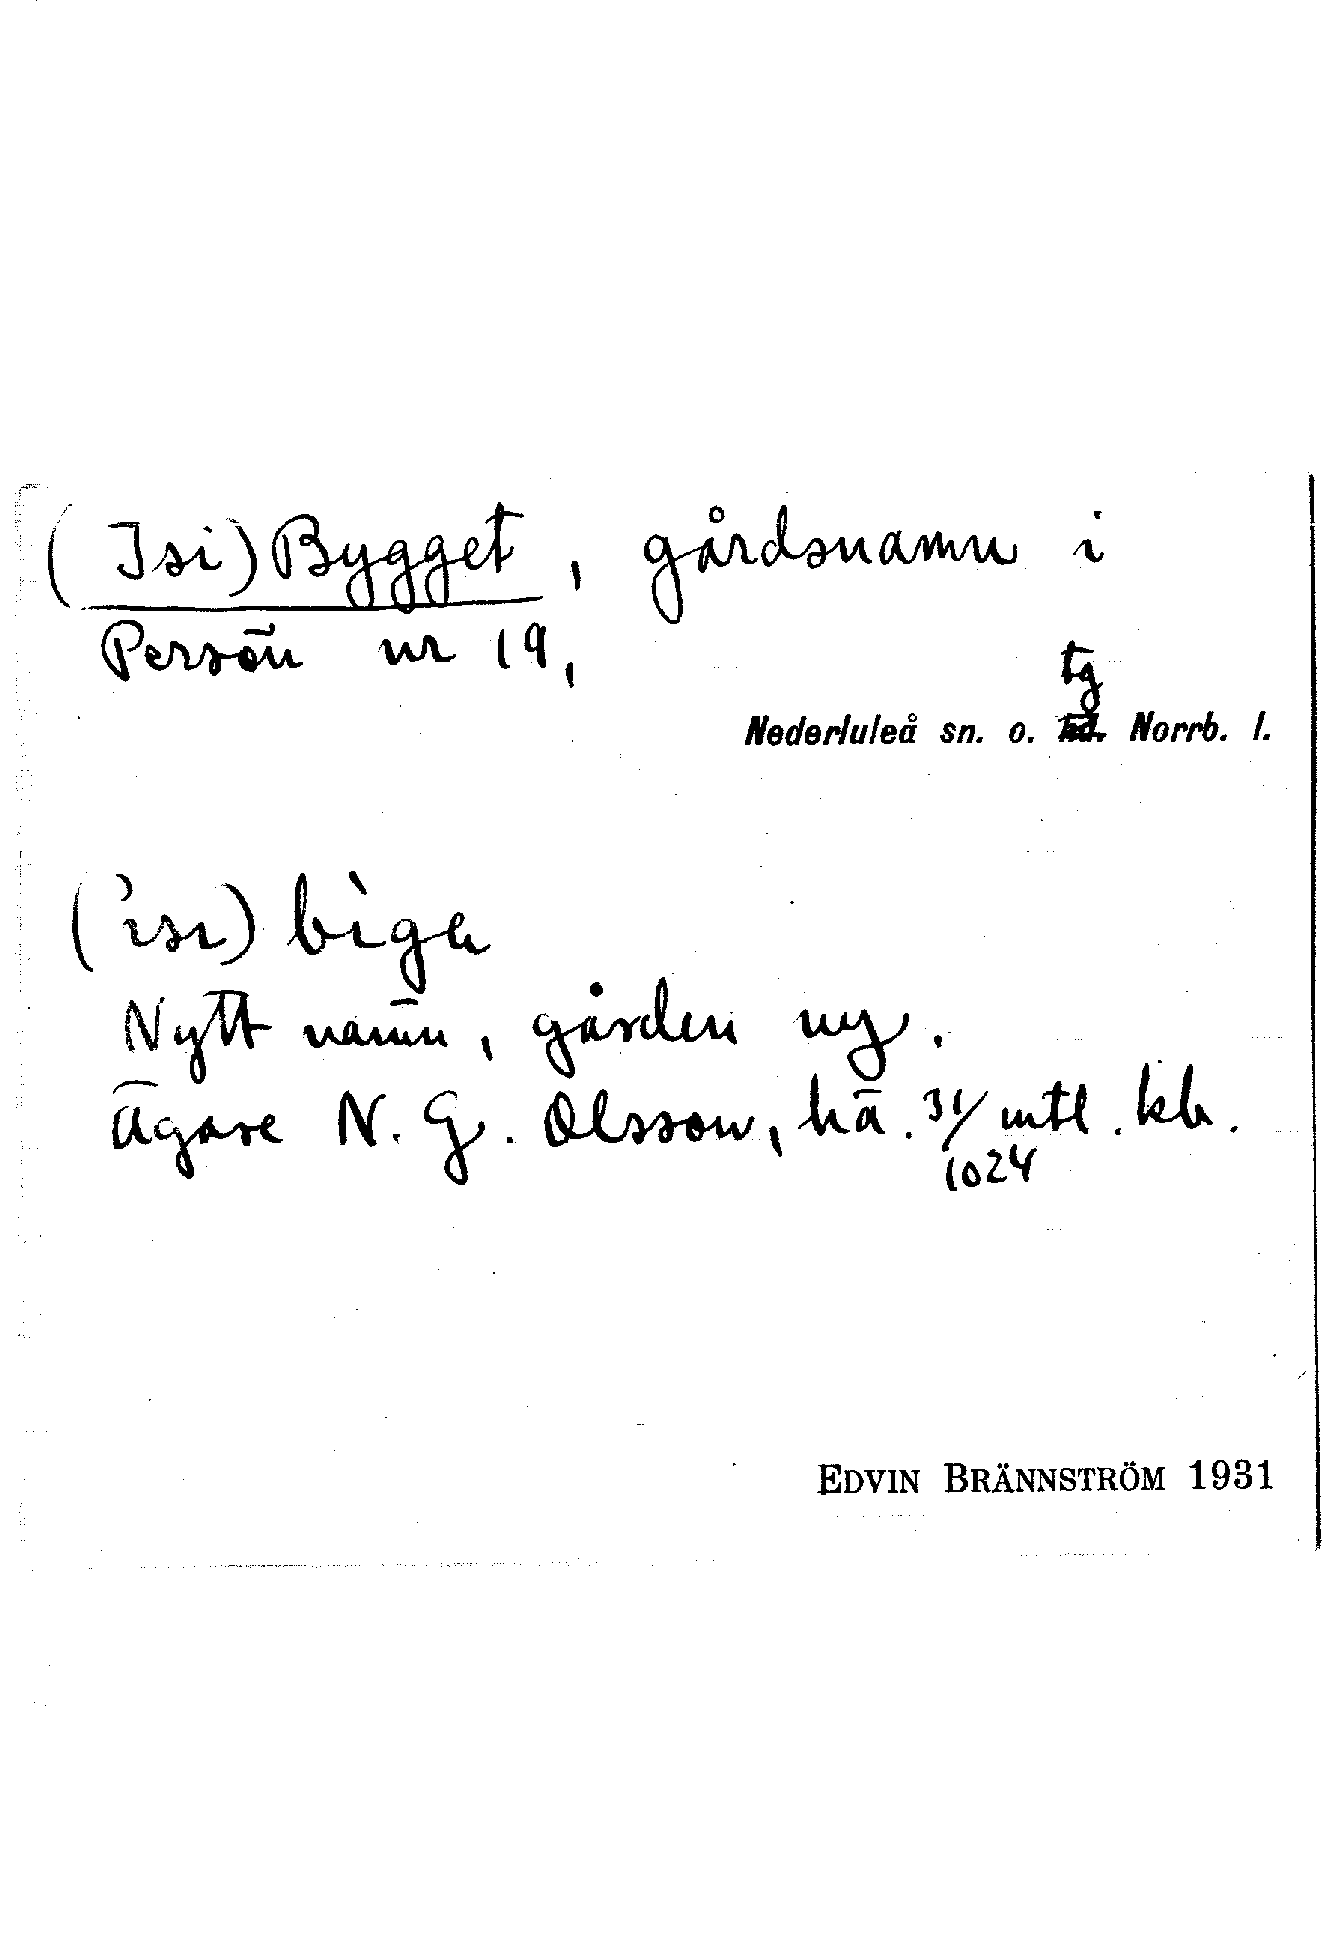 (Isi)Bygget, gårdsnamn i
Persön nr 19,
tg
Nederluleå sn. o. hd. Norrb. l.
Nytt namn, gården ny.
Ägare N. G. Olsson, hä. 31/1024 mtl. kb.
EDVIN BRÄNNSTRÖM 1931